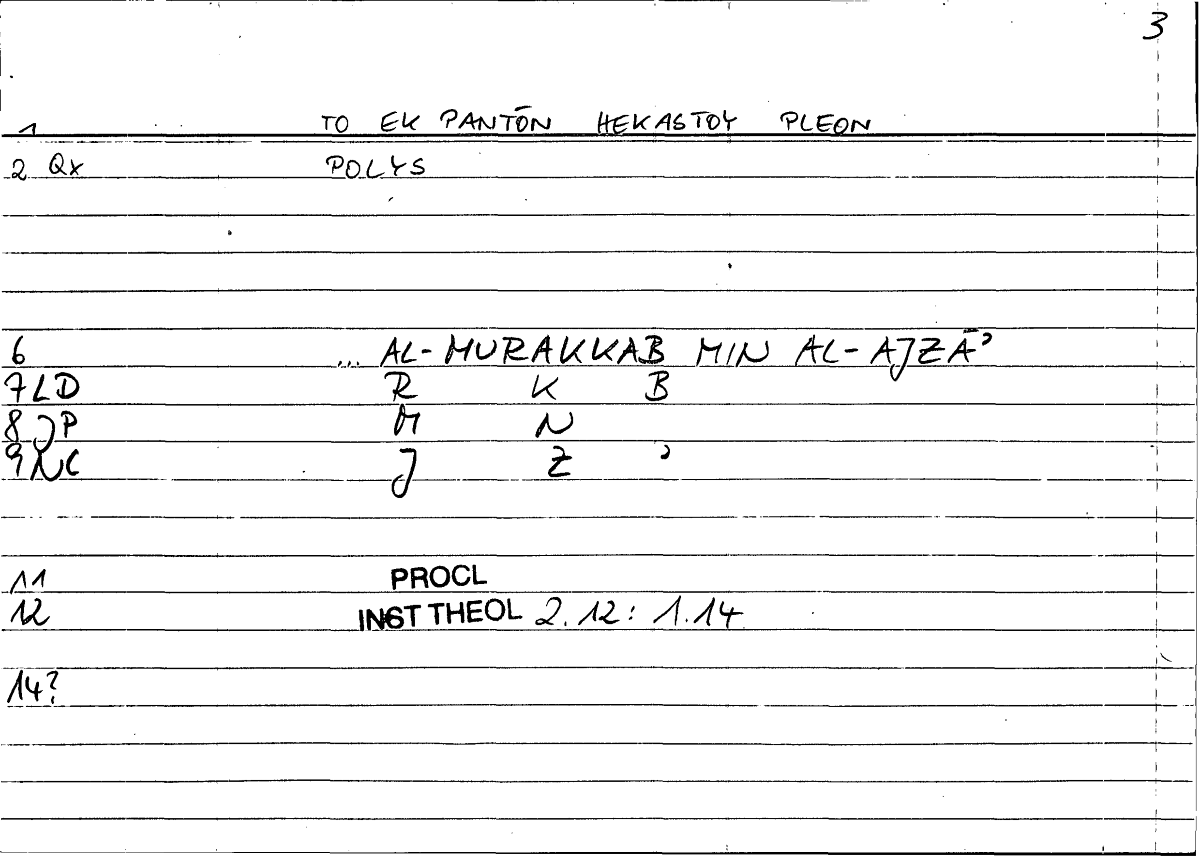 3
1 TO EK PANTŌN HEKASTOY PLEON
2 Qx POLYS
6 ... AL-MURAKKAB MIN AL-AJZĀʾ
7 LD R K B
8 JP M N
9 NC J Z ʾ
11 PROCL
12 INST THEOL 2.12: 1.14
14?